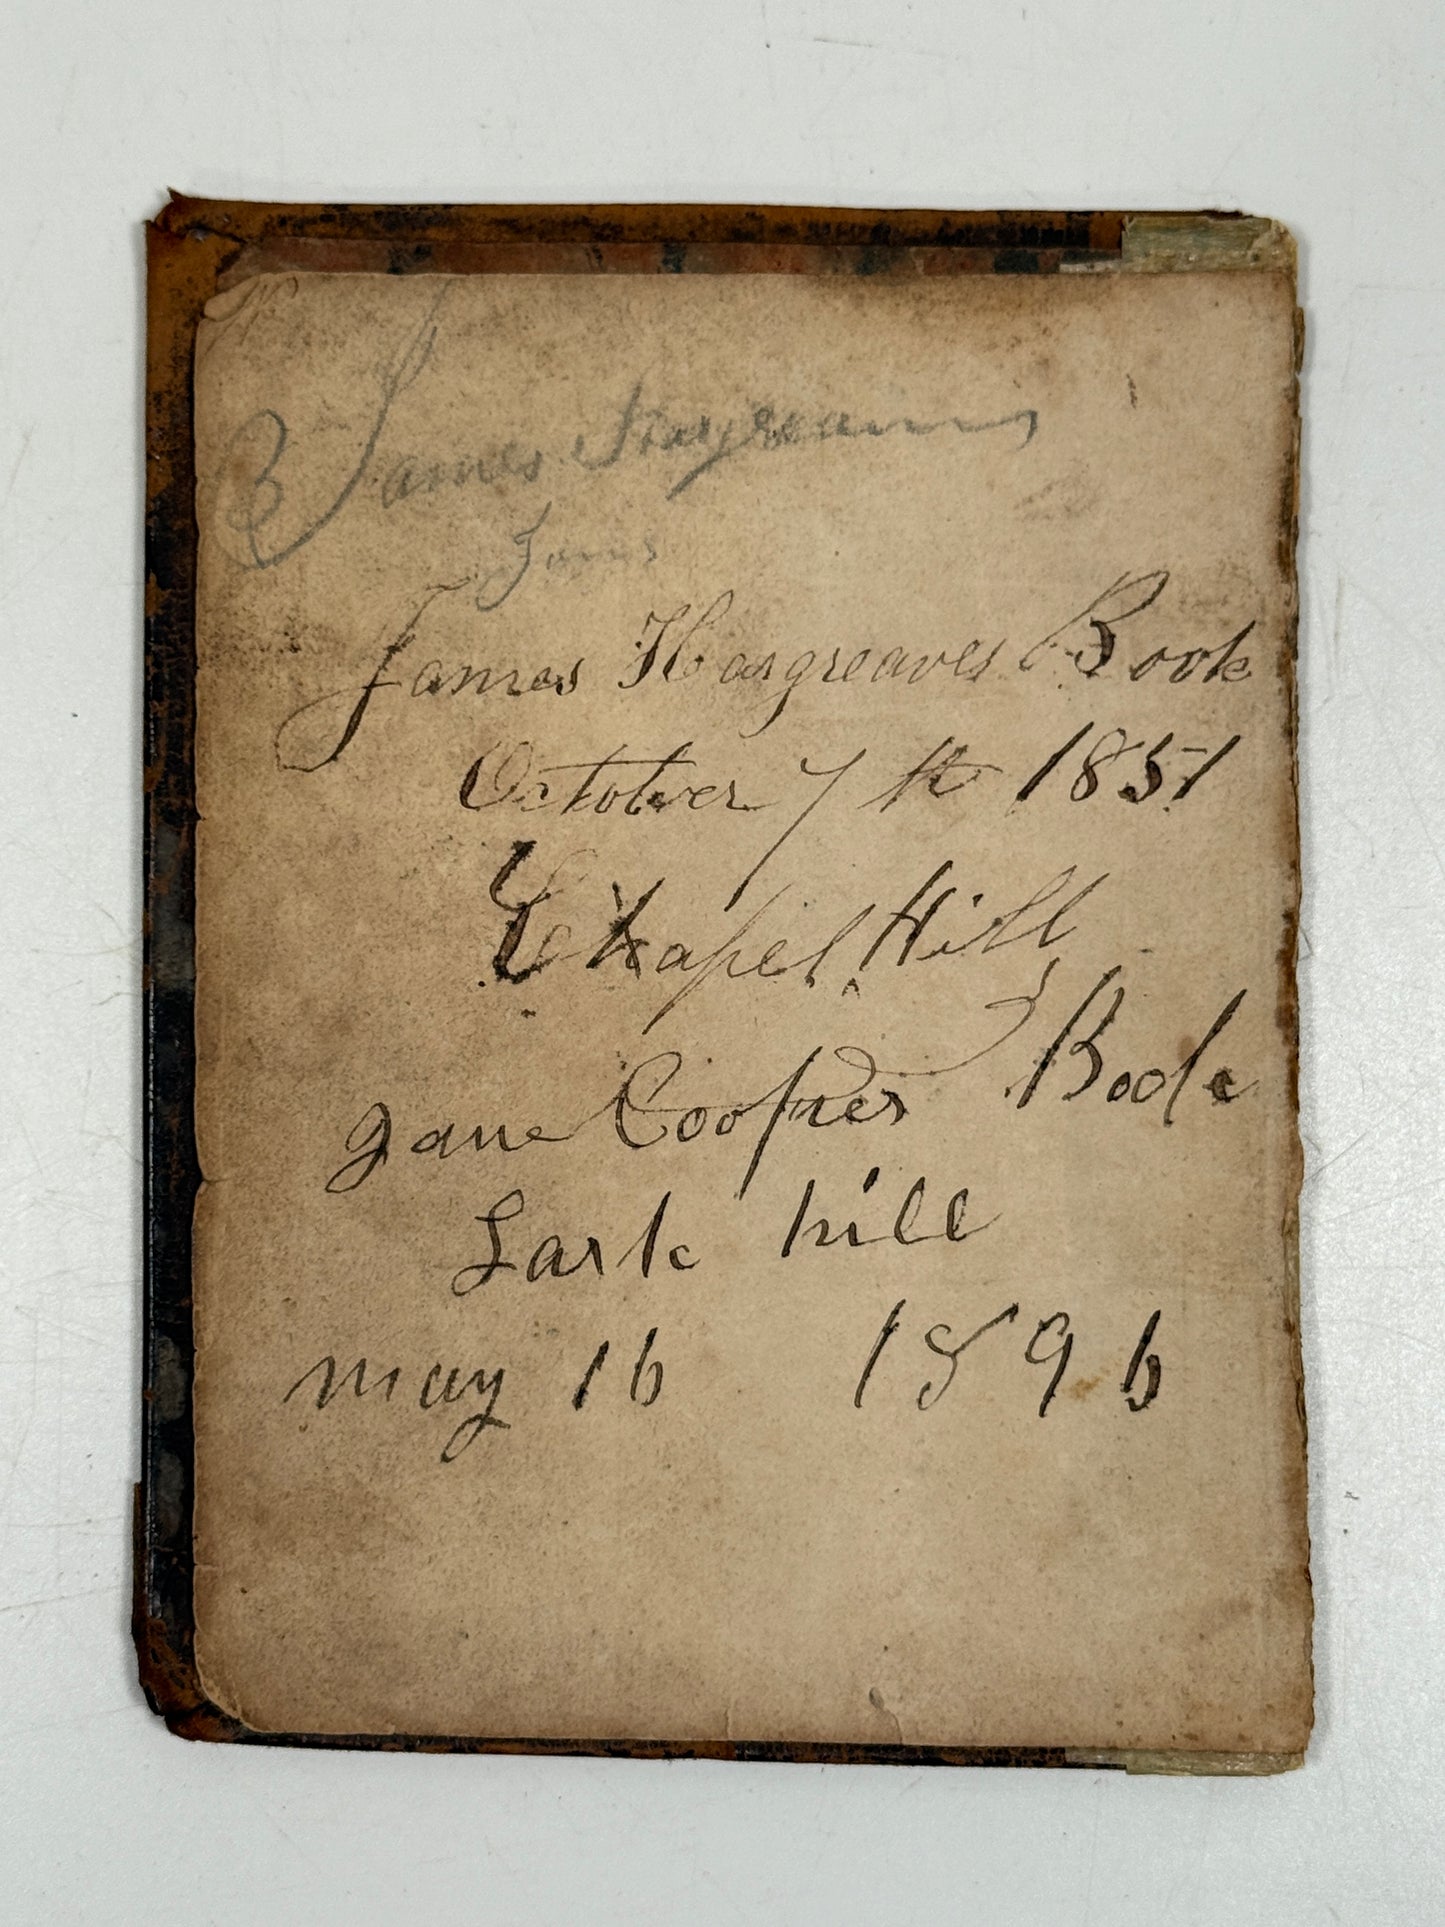 James Hargreaves
James
James Hargreaves Book
October 7th 1851
Chapel Hill
Jane Cooper Book
Lark hill
may 16 1896